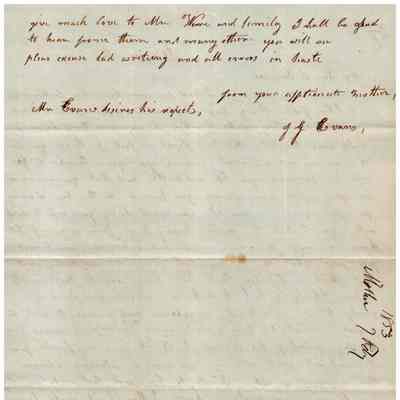 give much love to Mrs. and family I shall be glad
to hear from them and many others you will
pleas excuse bad writeing and all errors in haste
from your affctionate Mother,
Mr Evans desires his respects,
J Evans,
Mother
1853